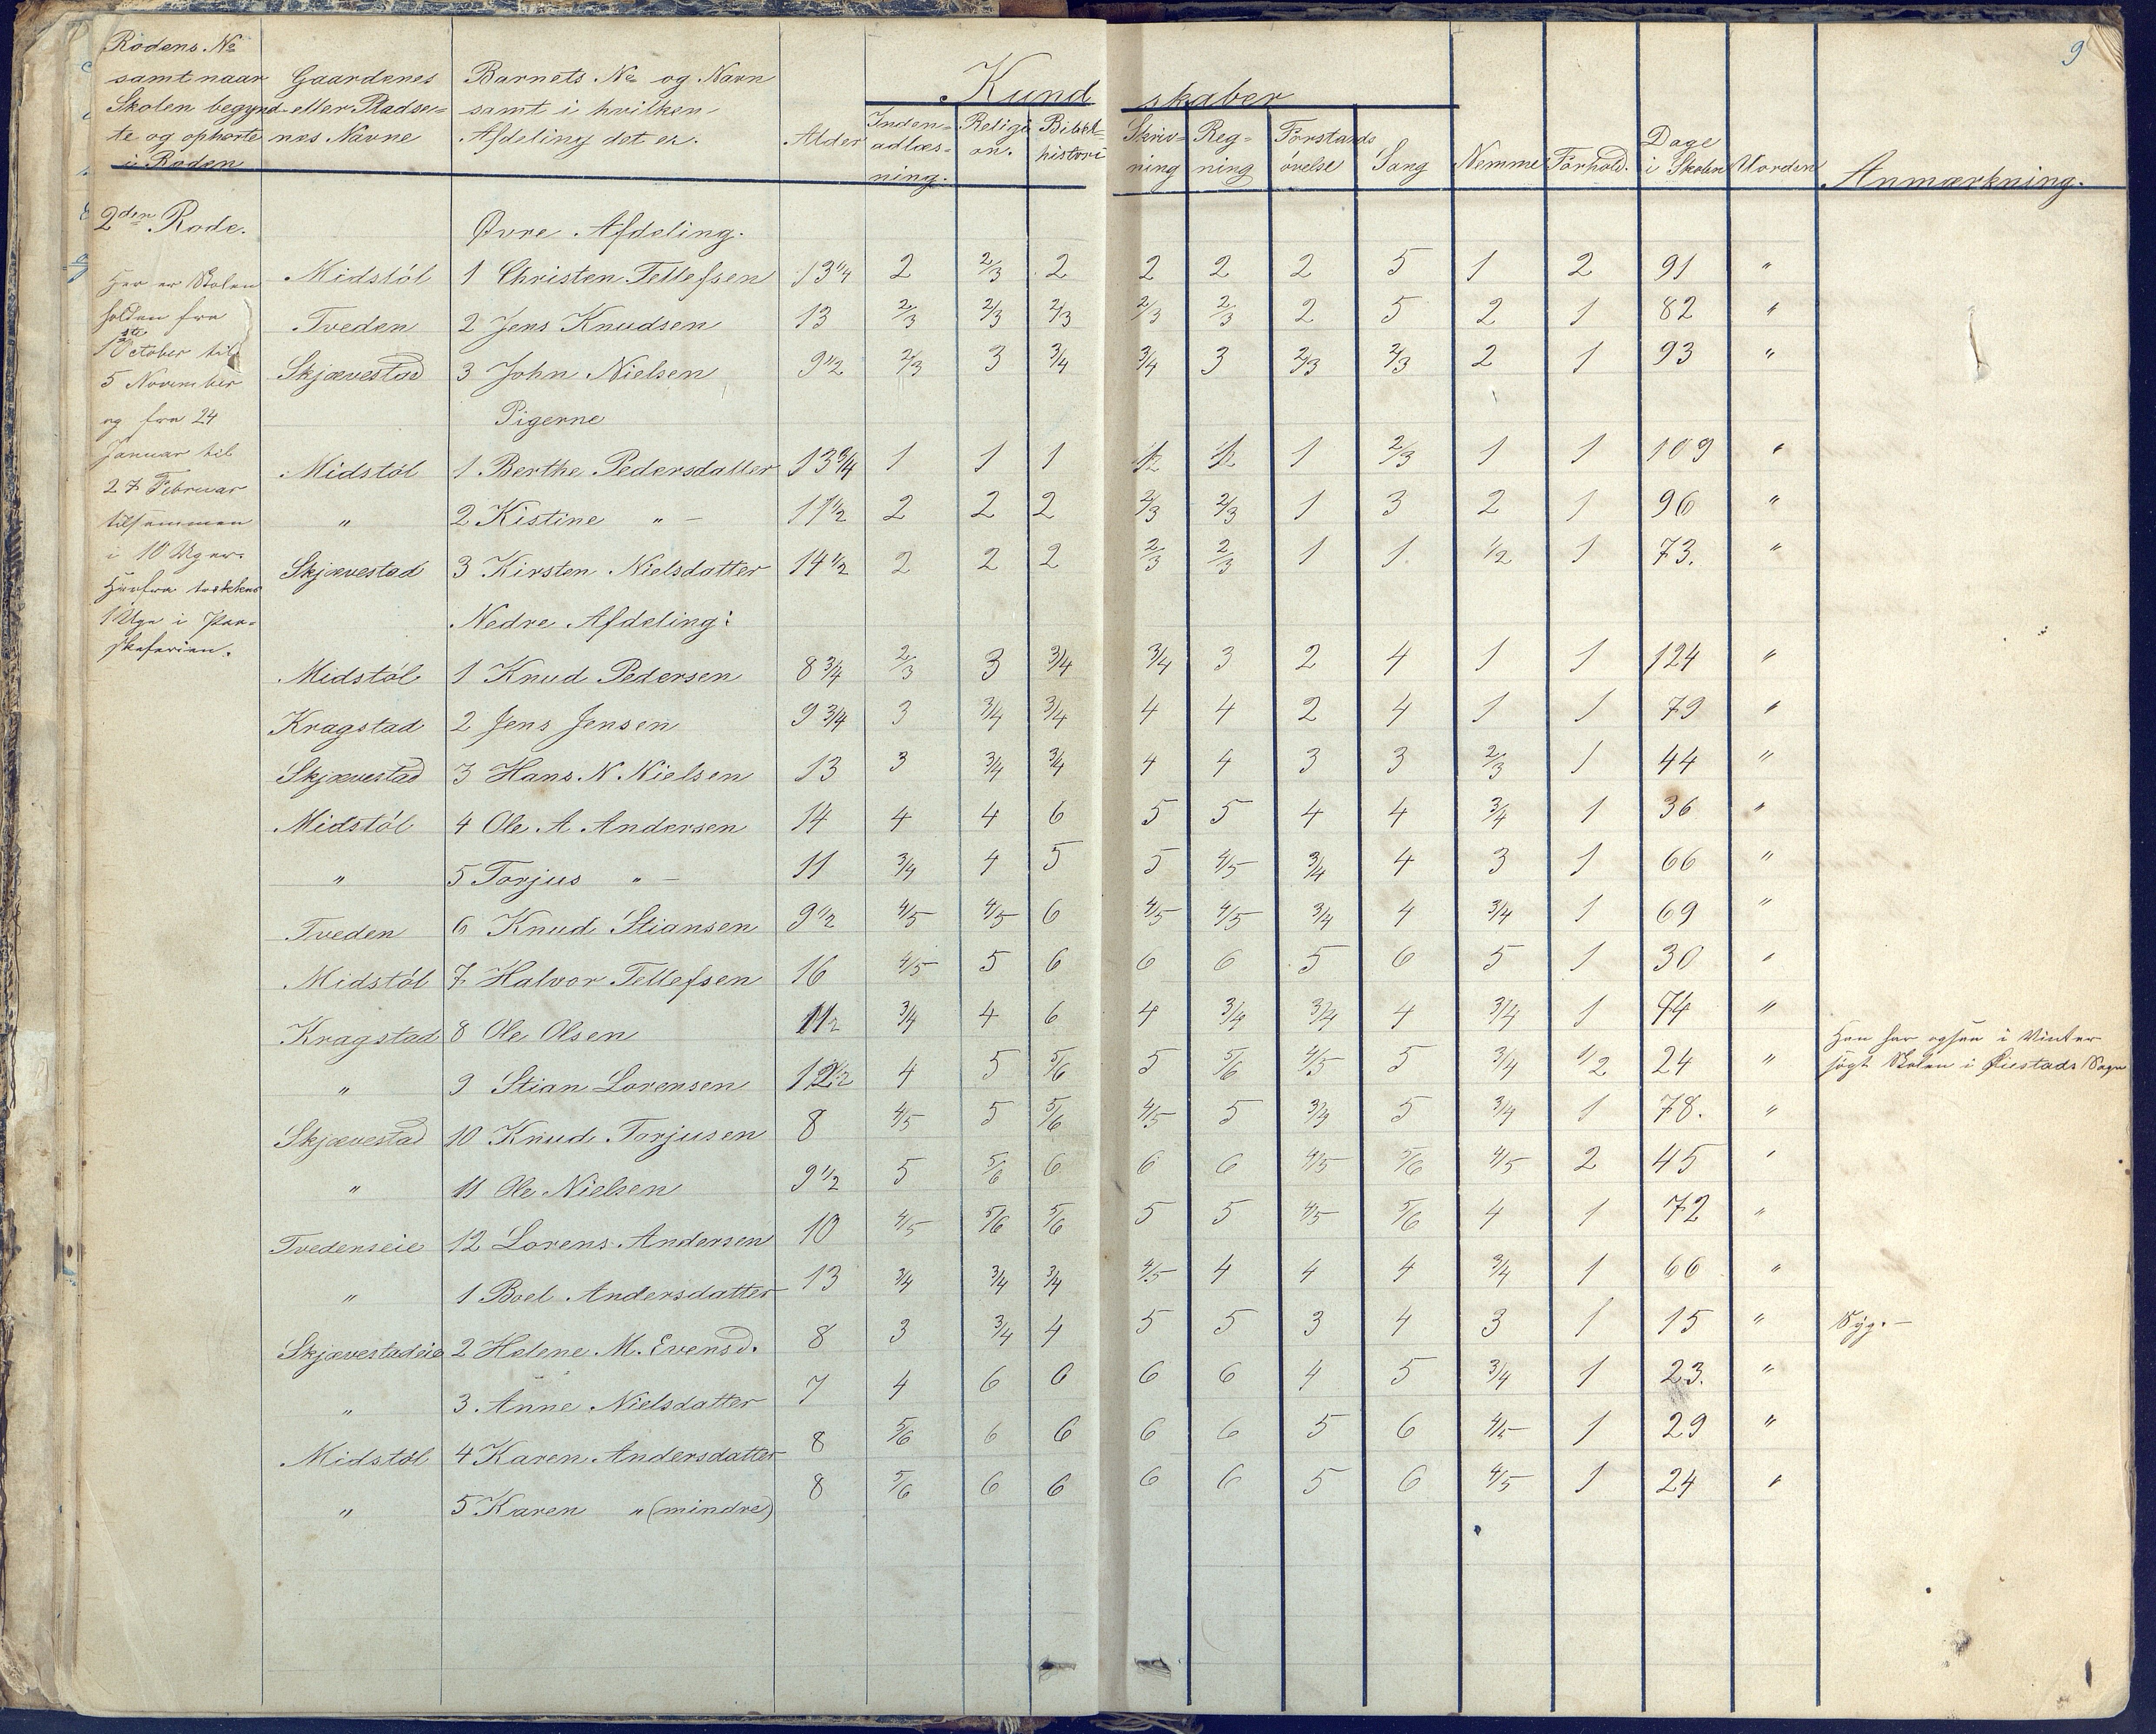 9
Rodens No samt naar Skolen begynd- te og ophørte i Roden | Gaardenes eller Pladse- nes Navne | Barnets No og Navn samt i hvilken Afdeling det er. | Alder | Kundskaber | Nemme | Forhold. | Dage i Skolen | Uorden | Anmærkning.
Inden- adlæs- ning. | Religi on. | Bibel- histori | Skriv- ning | Reg- ning | Forstands øvelse | Sang
2den Rode.
Her er Skolen
holden fra
1ste October til
5 November
og fra 24
Januar til
27 Februar
tilsammen
i 10 Uger.
Herfra
1 Uge i Paa-
skeferien.
Øvre Afdeling.
Midstøl 1 Christen Tellefsen 13 1/4 2 2/3 2 2 2 2 5 1 2 91 "
Tveden 2 Jens Knudsen 13 2/3 2/3 2/3 2/3 2/3 2 5 2 1 82 "
Skjævestad 3 John Nielsen 9 1/2 2/3 3 3/4 3/4 3 2/3 2/3 2 1 93 "
Pigerne
Midstøl 1 Berthe Pedersdatter 13 3/4 1 1 1 1/2 1/2 1 2/3 1 1 109 "
" 2 Kistine " - 11 1/2 2 2 2 2/3 2/3 1 3 2 1 96 "
Skjævestad 3 Kirsten Nielsdatter 14 1/2 2 2 2 2/3 2/3 1 1 1/2 1 73. "
Nedre Afdeling:
Midstøl 1 Knud Pedersen 8 3/4 2/3 3 3/4 3/4 3 2 4 1 1 124 "
Kragstad 2 Jens Jensen 9 3/4 3 3/4 3/4 4 4 2 4 1 1 79 "
Skjævestad 3 Hans N. Nielsen 13 3 3/4 3/4 4 4 3 3 2/3 1 44 "
Midstøl 4 Ole A Andersen 14 4 4 6 5 5 4 4 3/4 1 36 "
" 5 Torjus " - 11 3/4 4 5 5 4/5 3/4 4 3 1 66 "
Tveden 6 Knud Stiansen 9 1/2 4/5 4/5 6 4/5 4/5 3/4 4 3/4 1 69 "
Midstøl 7 Halvor Tellefsen 16 4/5 5 6 6 6 5 6 5 1 30 "
Kragstad 8 Ole Olsen 11 1/2 3/4 4 6 4 3/4 3/4 4 3/4 1 74 "
" 9 Stian Lorensen 12 1/2 4 5 5/6 5 5/6 4/5 5 3/4 1/2 24 " Han har ogsaa i Vinter
søgt Skolen i Øiestads Sogn
Skjævestad 10 Knud Torjusen 8 4/5 5 5/6 4/5 5 3/4 5 3/4 1 78. "
" 11 Ole Nielsen 9 1/2 5 5/6 6 6 6 4/5 5/6 4/5 2 45 "
Tvedenseie 12 Lorens Andersen 10 4/5 5/6 5/6 5 5 4/5 5/6 4 1 72 "
" 1 Boel Andersdatter 13 3/4 3/4 3/4 4/5 4 4 4 3/4 1 66 "
Skjævestadeie 2 Helene M. Evensd. 8 3 3/4 4 5 5 3 4 3 1 15 " Syg. -
" 3 Anne Nielsdatter 7 4 6 6 6 6 4 5 3/4 1 23. "
Midstøl 4 Karen Andersdatter 8 5/6 6 6 6 6 5 6 4/5 1 29 "
" 5 Karen " (mindre) 8 5/6 6 6 6 6 5 6 4/5 1 24 "